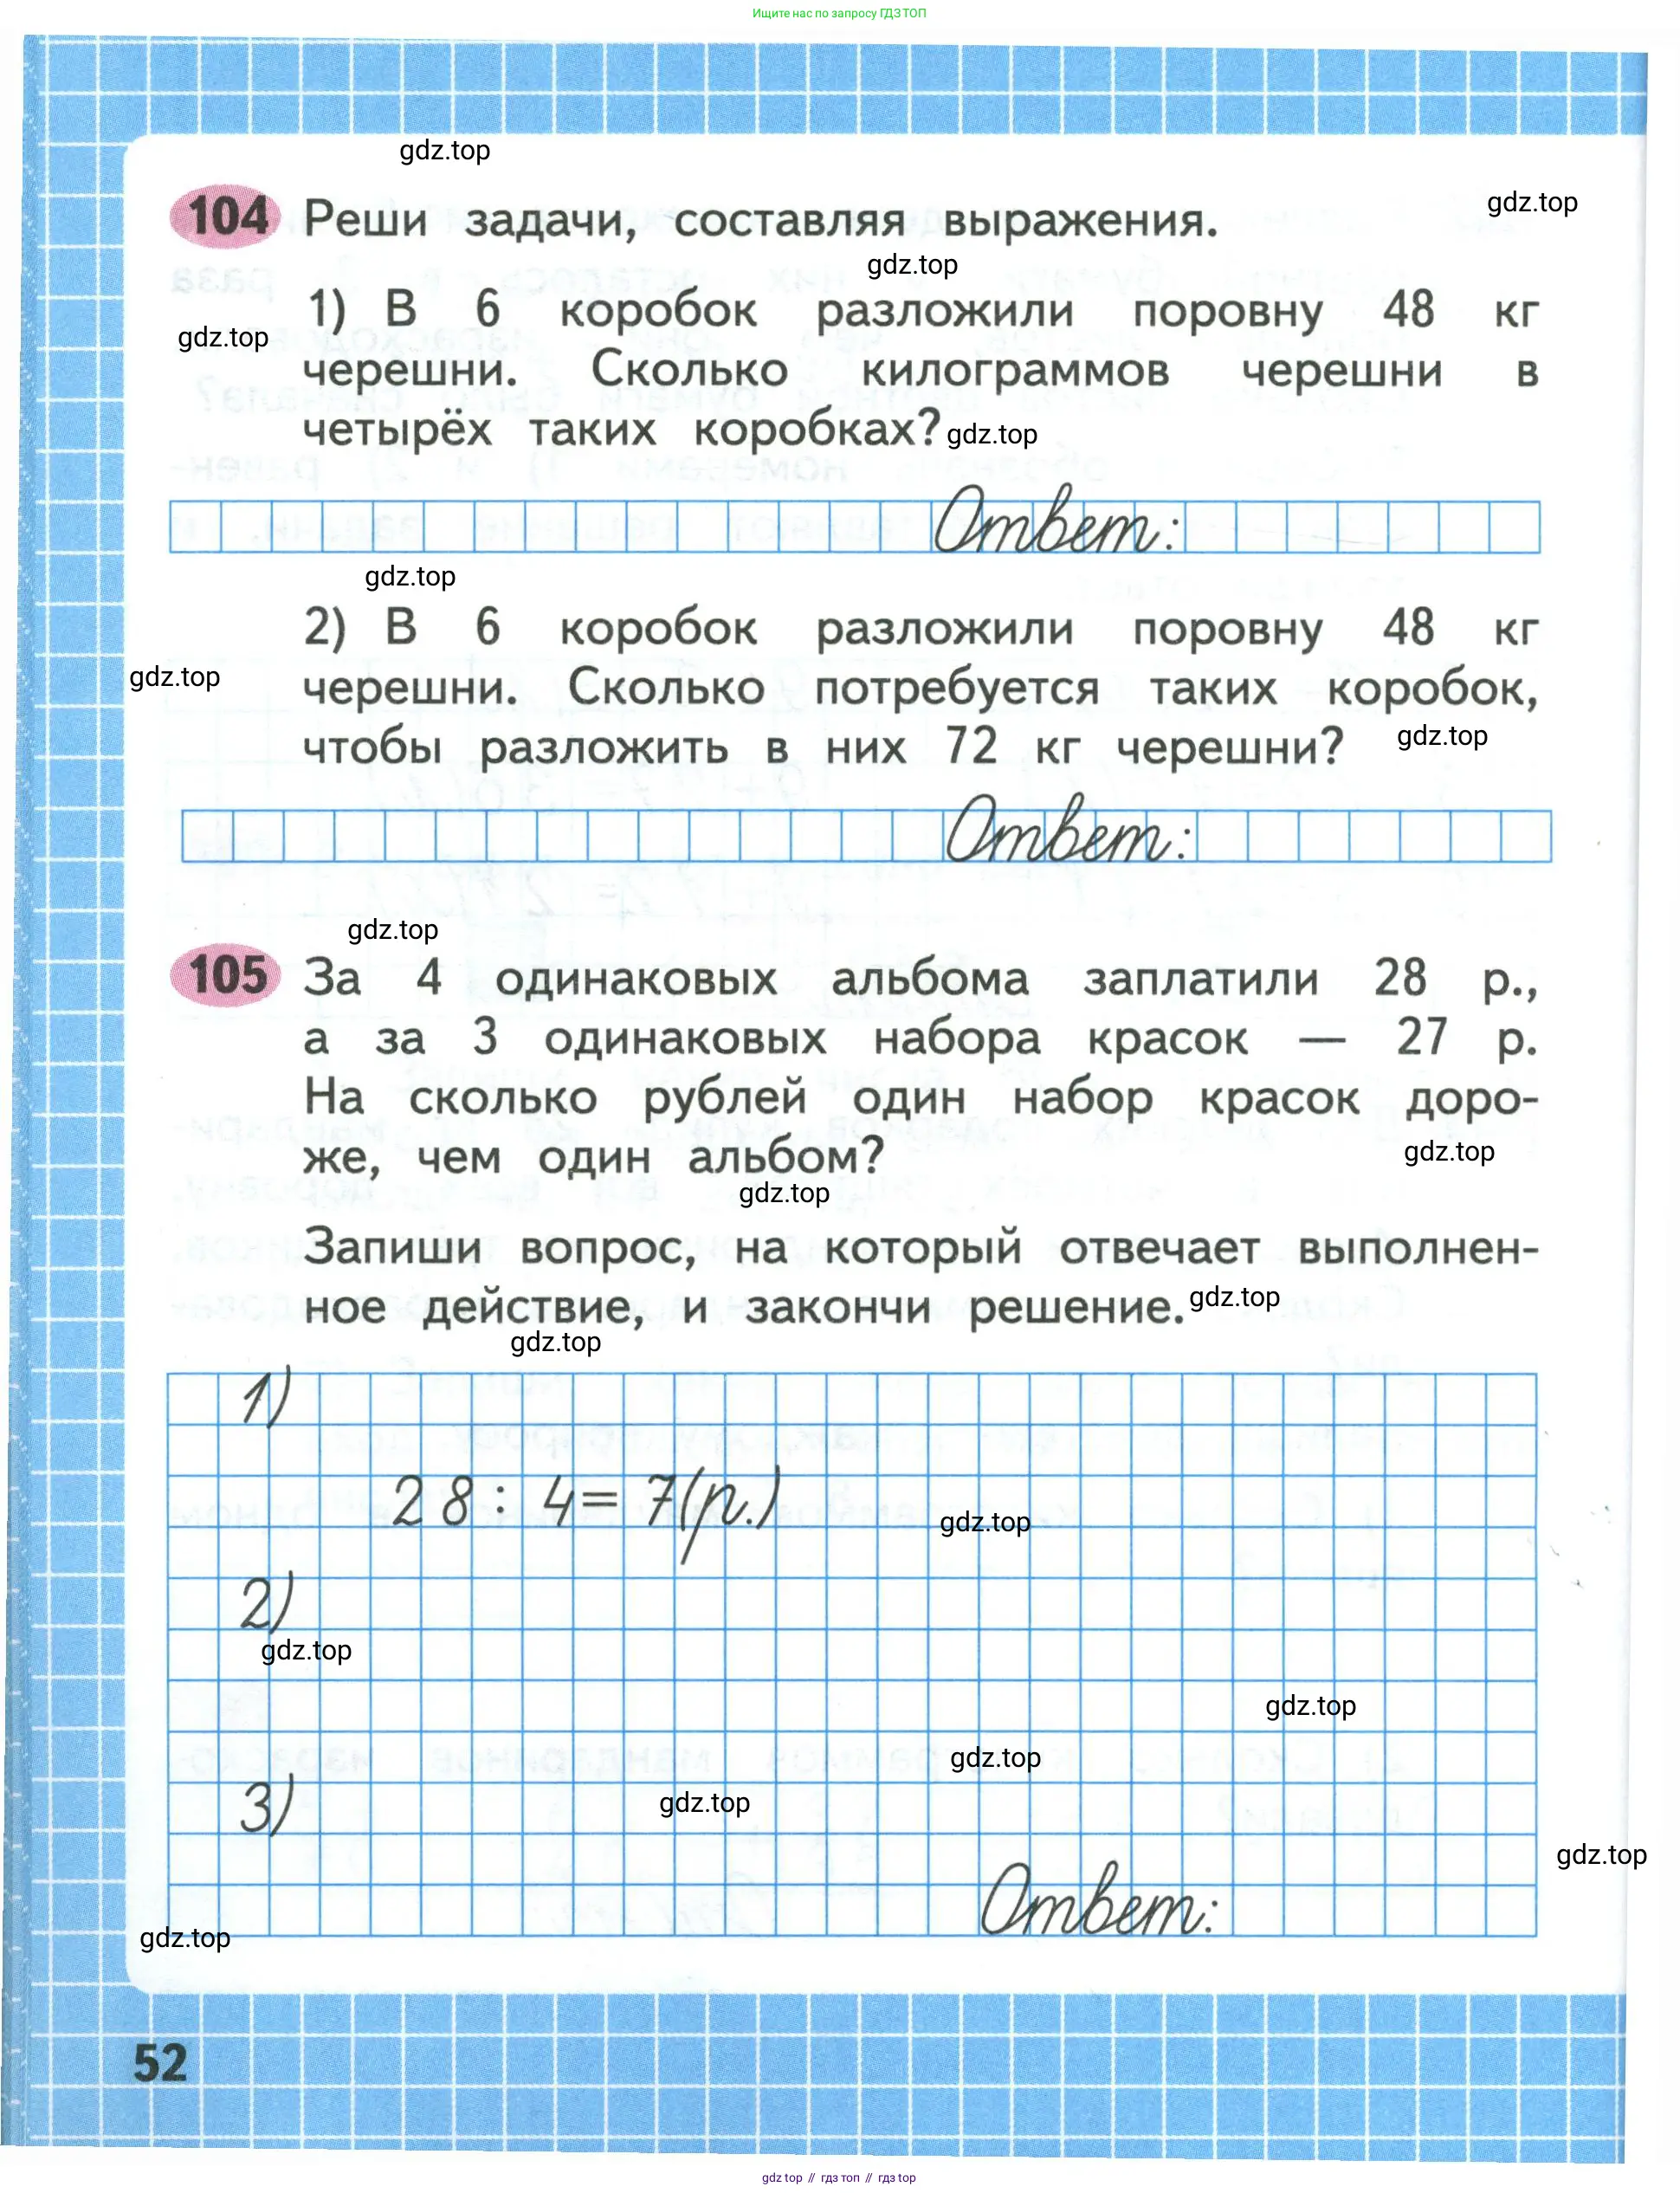 Ищите нас по запросу ГДЗ ТОП
gdz.top
104 Реши задачи, составляя выражения.
gdz.top
gdz.top
1) В 6 коробок разложили поровну 48 кг
gdz.top
черешни. Сколько килограммов черешни в
четырёх таких коробках? gdz.top
Ответ:
gdz.top
2) В 6 коробок разложили поровну 48 кг
gdz.top
черешни. Сколько потребуется таких коробок,
чтобы разложить в них 72 кг черешни? gdz.top
Ответ:
gdz.top
105 За 4 одинаковых альбома заплатили 28 р.,
а за 3 одинаковых набора красок — 27 р.
На сколько рублей один набор красок доро-
же, чем один альбом? gdz.top
gdz.top
Запиши вопрос, на который отвечает выполнен-
ное действие, и закончи решение. gdz.top
gdz.top
1)
28 : 4 = 7(р.)
gdz.top
2)
gdz.top
gdz.top
gdz.top
3) gdz.top
gdz.top
Ответ:
gdz.top
52
gdz top // гдз топ // гдз top